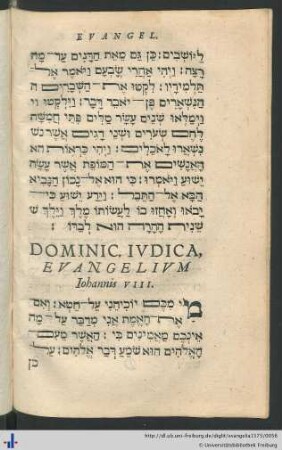 EVANGEL.
לַיּוֹשְׁבִים׃ כֵּן גַּם מֵאֵת הַדָּגִים עַד־מָה
רָצָה׃ וַיְהִי אַחֲרֵי שָׂבְעָם וַיֹּאמֶר אֶל־
תַּלְמִידָיו׃ לִקְטוּ אֶת־הַשְּׁבָרִים
הַנִּשְׁאָרִים פֶּן־יֹאבַר דָּבָר׃ וַיִּלְקְטוּ וי
וַיְמַלְאוּ שְׁנֵים עָשָׂר סַלִּים פִּתֵּי חֲמִשָּׁה
לֶחֶם שְׂעֹרִים וּשְׁנֵי דָגִים אֲשֶׁר נש
נִשְׁאֲרוּ לָאֹכְלִים׃ וַיְהִי כִּרְאוֹת הא
הָאֲנָשִׁים אֶת־הַמּוֹפֵת אֲשֶׁר עָשָׂה
יֵשׁוּעַ וַיֹּאמְרוּ׃ כִּי הוּא אֶל־נָכוֹן הַנָּבִיא
הַבָּא אֶל־הַתֵּבֵל׃ וַיֵּדַע יֵשׁוּעַ כִּי־
יָבֹאוּ וְאָחֲזוּ בוֹ לַעֲשׂוֹתוֹ מֶלֶךְ וַיֵּלֶךְ ש
שֵׁנִית הָהָרָה הוּא לְבַדּוֹ׃
DOMINIC. IVDICA,
EVANGELIVM
Iohannis VIII.
מִי מִכֶּם יוֹכִיחֵנִי עַל־חֵטְא׃ וְאִם
אֶת־הָאֱמֶת אֲנִי מְדַבֵּר עַל־מָה
אֵינְכֶם מַאֲמִינִים בִּי׃ הַאֲשֶׁר מֵעִם
הָאֱלֹהִים הוּא שֹׁמֵעַ דְּבַר אֱלֹהִים׃ עַל־
כֵּן
http://dl.ub.uni-freiburg.de/diglit/evangelia1575/0056
© Universitätsbibliothek Freiburg